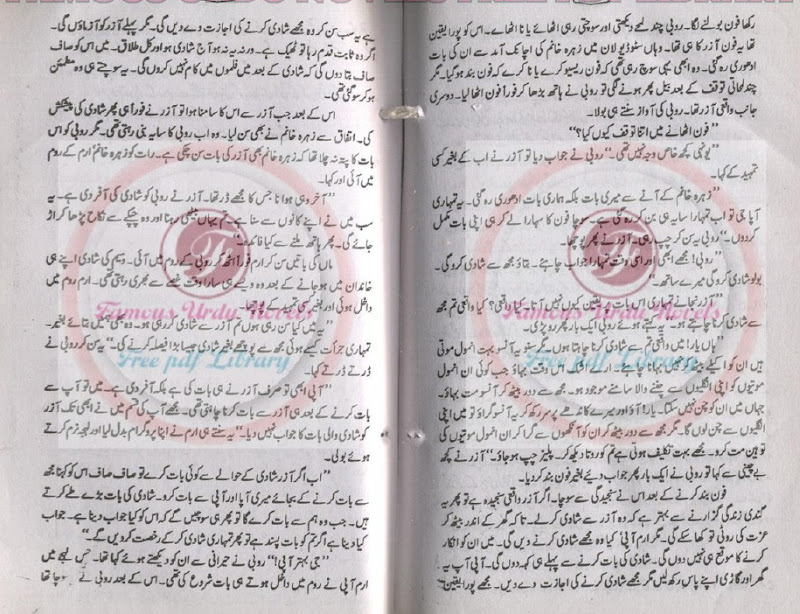 رکھا فون بولنے لگا۔ روبی چند لمحے دیکھتی اور سوچتی رہی اٹھائے یا نا اٹھائے۔ اس کو پورا یقین
تھا یہ فون آزر کا ہی تھا۔ وہاں سٹوڈیو لان میں زہرہ خانم کی اچانک آمد سے ان کی بات
ادھوری رہ گئی۔ وہ ابھی یہی سوچ رہی تھی کہ فون ریسیو کرے یا نا کرے کہ فون بند ہو گیا۔ مگر
چند لمحاتی توقف کے بعد بیل پھر ہونے لگی تو روبی نے ہاتھ بڑھا کر فوراً فون اٹھا لیا۔ دوسری
جانب واقعی آزر تھا۔ روبی کی آواز سنتے ہی بولا۔
"فون اٹھانے میں اتنا توقف کیوں کیا؟"
"یونہی کچھ خاص وجہ نہیں تھی۔" روبی نے جواب دیا تو آزر نے اب کے بغیر کسی
تمہید کے کہا۔
"زہرہ خانم کے آنے سے میری بات بلکہ ہماری بات ادھوری رہ گئی۔ یہ تمہاری
آپا جی تو اب تمہارا سایہ ہی بن کر رہ گئی ہے۔ سوچا فون کا سہارا لے کر ہی اپنی بات مکمل
کر دوں۔" روبی یہ سن کر چپ رہی۔ آزر نے پھر پوچھا۔
"روبی! مجھے ابھی اور اسی وقت تمہارا جواب چاہئے۔ بتاؤ مجھ سے شادی کرو گی۔
بولو شادی کرو گی میرے ساتھ۔"
"آزر نجانے تمہاری اس بات پر یقین کیوں نہیں آتا۔ کیا واقعی؟ کیا واقعی تم مجھ
سے شادی کرنا چاہتے ہو۔" یہ کہتے ہوئے روبی ایک بار پھر رو پڑی۔
"ہاں یار! میں واقعی تم سے شادی کرنا چاہتا ہوں۔ مگر سنو یہ آنسو بہت انمول موتی
ہیں ان کو اکیلے بیٹھ کر نہیں بہانا چاہئے۔ ارے یہ اشک اس وقت بہاؤ جب کوئی ان انمول
موتیوں کو اپنی انگلیوں سے چننے والا سامنے موجود ہو۔ مجھ سے دور بیٹھ کر آنسو مت بہاؤ۔
جہاں میں ان کو چن نہیں سکتا۔ یار! آؤ اور میرے کاندھے پر سر رکھ کر یہ آنسو گراؤ تو میں اپنی
انگلیوں سے چن لوں گا۔ مگر مجھ سے دور بیٹھ کر ان کو آنکھوں سے گرا کر ان انمول موتیوں کی
توہین مت کرو۔ مجھے بہت تکلیف ہوتی ہے تم کو روتا دیکھ کر۔ پلیز چپ ہو جاؤ۔" آزر نے کچھ
بے چینی سے کہا تو روبی نے ایک بار پھر جواب دیئے بغیر فون بند کر دیا۔
فون بند کرنے کے بعد اس نے سنجیدگی سے سوچا۔ اگر آزر واقعی سنجیدہ ہے تو پھر یہ
گندی زندگی گزارنے سے بہتر ہے کہ وہ آزر سے شادی کر لے۔ تاکہ گھر کے اندر بیٹھ کر
عزت کی روٹی تو کھا سکے گی۔ مگر ارم آپی! کیا وہ مجھے شادی کرنے دیں گی۔ میں ان کو انکار
کرنے کا موقع ہی نہیں دوں گی۔ شادی کی بات کرنے سے پہلے ہی کہہ دوں گی۔ آپی آپ یہ
گھر اور گاڑی اپنے پاس رکھ لیں مگر مجھے شادی کرنے کی اجازت دے دیں۔ مجھے پورا یقین
ہے یہ سب سن کر وہ مجھے شادی کرنے کی اجازت دے دیں گی۔ مگر پہلے آزر کو آزماؤں گی۔
اگر وہ ثابت قدم رہا تو ٹھیک ہے۔ ورنہ یہ نہ ہو آج شادی ہو اور کل طلاق۔ میں اس کو صاف
صاف بتا دوں گی کہ شادی کے بعد میں فلموں میں کام نہیں کروں گی۔ یہ سوچتے ہی وہ مطمئن
ہو کر سو گئی تھی۔
اس کے بعد جب آزر سے اس کا سامنا ہوا تو آزر نے فوراً ہی پھر شادی کی پیشکش
کی۔ اتفاق سے زہرہ خانم نے بھی سن لیا۔ وہ اب روبی کا سایہ بنی رہتی تھی۔ مگر روبی کو اس
بات کا پتہ نہ چلا تھا کہ زہرہ خانم بھی آزر کی بات سن چکی ہے۔ رات کو زہرہ خانم ارم کے روم
میں آئی اور کہا۔
"آخر وہی ہوا نا جس کا مجھے ڈر تھا۔ آزر نے روبی کو شادی کی آفر دی ہے۔ یہ
سب میں نے اپنے کانوں سے سنا ہے۔ تم یہاں بیٹھی رہنا اور وہ چپکے سے نکاح پڑھا کر اڑ
جائے گی۔ پھر ہاتھ ملنے سے کیا فائدہ۔"
ماں کی باتیں سن کر ارم فوراً اٹھ کر روبی کے روم میں آئی۔ وسیم کی شادی اپنے ہی
خاندان میں ہو جانے کے بعد وہ ویسے ہی سارا وقت غصے سے بھری رہتی تھی۔ ارم روم میں
داخل ہوئی اور بغیر کسی تمہید کے پوچھا۔
"یہ میں کیا سن رہی ہوں تم آزر سے شادی کر رہی ہو۔ وہ بھی ہمیں بتائے بغیر۔
تمہاری جرأت کیسے ہوئی مجھ سے پوچھے بغیر شادی جیسا بڑا فیصلہ کرنے کی۔" یہ سن کر روبی نے
ڈرتے ڈرتے کہا۔
"آپی ابھی تو صرف آزر نے ہی بات کی ہے بلکہ آفر دی ہے۔ میں تو آپ سے
بات کرنے کے بعد ہی آزر سے بات کرنا چاہتی تھی۔ مجھے آپ کی قسم میں نے ابھی تک آزر
کو شادی والی بات کا جواب نہیں دیا۔" یہ سنتے ہی ارم نے اپنا پروگرام بدل لیا اور لہجہ نرم کرتے
ہوئے بولی۔
"اب اگر آزر شادی کے حوالے سے کوئی بات کرے تو صاف صاف اس کو کہنا مجھ
سے بات کرنے کے بجائے میری آپا اور آپی سے بات کرو۔ شادی کی بات بڑے طے کرتے
ہیں۔ جب وہ ہم سے بات کرے گا تو پھر ہی سوچیں گے کہ اس کو کیا جواب دینا ہے۔ جواب
کیا دینا ہے اگر تم کو بات پسند ہے تو پھر تمہاری شادی کر کے رخصت کر دیں گے۔"
"جی بہتر آپی!" روبی نے حیرانی سے ان کو دیکھتے ہوئے کہا تھا۔ جس لہجے میں
ارم آپی نے روم میں داخل ہوتے ہی بات شروع کی تھی۔ اس کے بعد روبی نے سوچا تھا
Famous Urdu Novels
Free pdf Library
Famous Urdu Novels
Free pdf Library